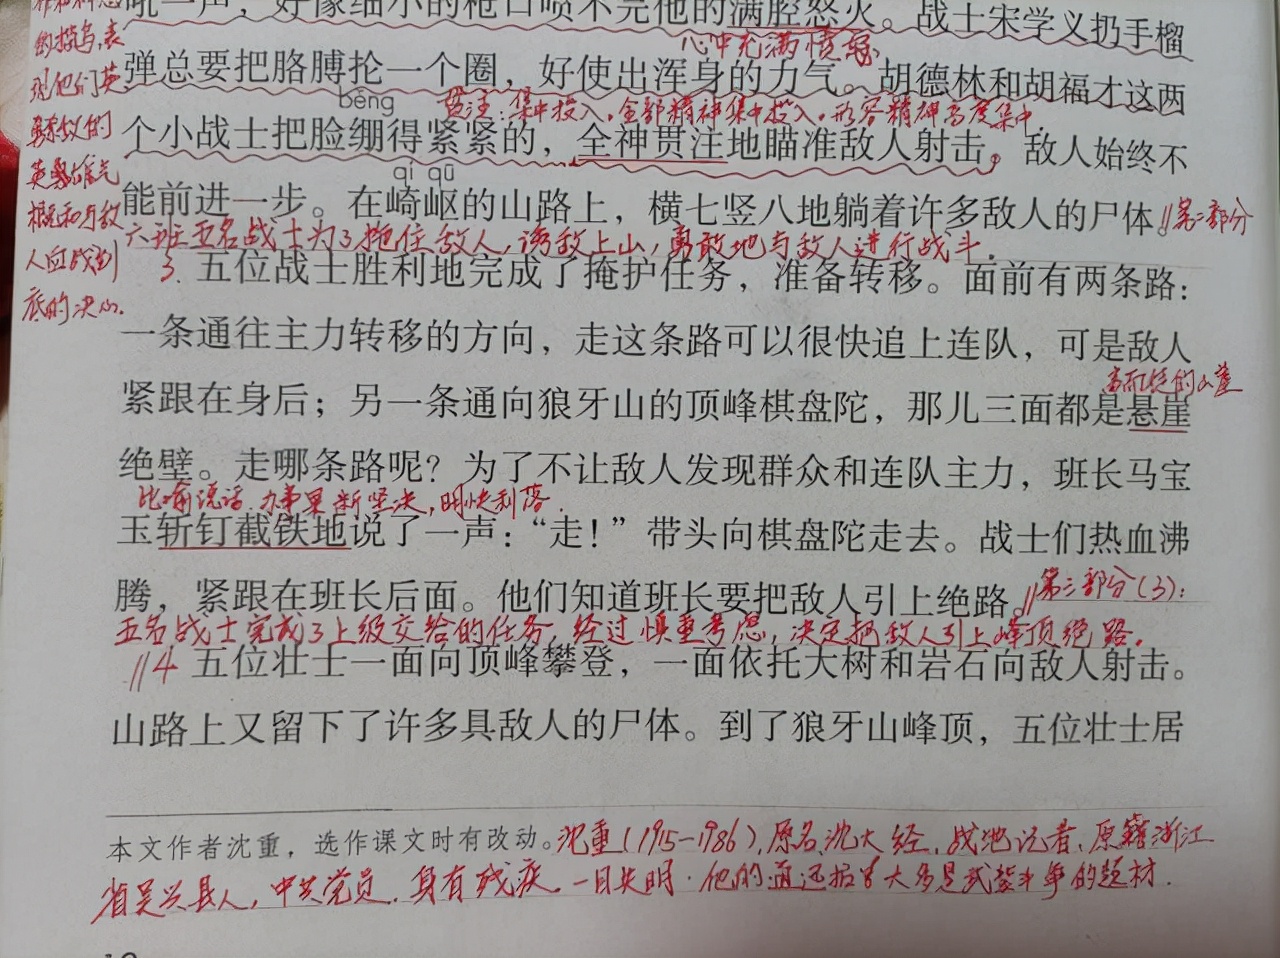 吼一声，好像细小的枪口喷不完他的满腔怒火。战士宋学义扔手榴
心中充满愤怒
的描写,表
现他们英
勇顽敌的
英勇雄气
概和与敌
人血战到
底的决心.
弹总要把胳膊抡一个圈，好使出浑身的力气。胡德林和胡福才这两
bēng
贯注:集中投入。全部精神集中投入。形容精神高度集中.
个小战士把脸绷得紧紧的，全神贯注地瞄准敌人射击。敌人始终不
qí qū
能前进一步。在崎岖的山路上，横七竖八地躺着许多敌人的尸体。//第二部分
六班五名战士为了拖住敌人,诱敌上山,勇敢地与敌人进行战斗.
3. 五位战士胜利地完成了掩护任务，准备转移。面前有两条路：
一条通往主力转移的方向，走这条路可以很快追上连队，可是敌人
高而陡的山崖
紧跟在身后；另一条通向狼牙山的顶峰棋盘陀，那儿三面都是悬崖
绝壁。走哪条路呢？为了不让敌人发现群众和连队主力，班长马宝
比喻说话.办事果断坚决,明快利落.
玉斩钉截铁地说了一声：“走！”带头向棋盘陀走去。战士们热血沸
腾，紧跟在班长后面。他们知道班长要把敌人引上绝路。//第三部分(3):
五名战士完成了上级交给的任务,经过慎重考虑,决定把敌人引上峰顶绝路.
//4 五位壮士一面向顶峰攀登，一面依托大树和岩石向敌人射击。
山路上又留下了许多具敌人的尸体。到了狼牙山峰顶，五位壮士居
本文作者沈重，选作课文时有改动。沈重(1915-1986),原名沈大经,战地记者、原籍浙江
省吴兴县人,中共党员.身有残疾.一目失明.他的通讯报告大多是武装斗争的题材.